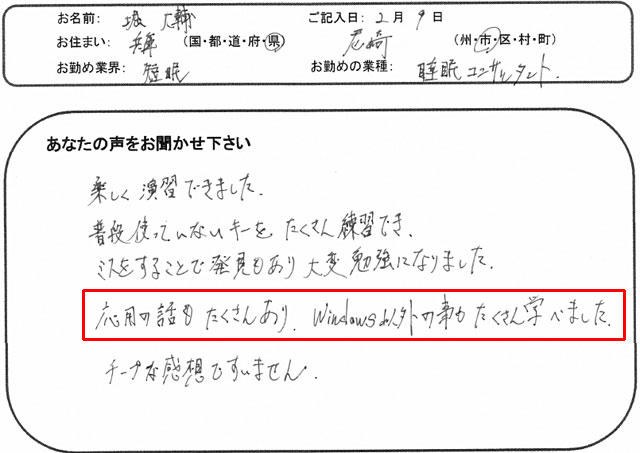 お名前: 堀 大輔 ご記入日: 2月 9日
お住まい: 兵庫 (国・都・道・府・県) 尼崎 (州・市・区・村・町)
お勤め業界: 睡眠 お勤めの業種: 睡眠コンサルタント.
あなたの声をお聞かせ下さい
楽しく演習できました.
普段使っていないキーをたくさん練習でき.
ミスをすることで発見もあり大変勉強になりました.
応用の話もたくさんあり. Windows以外の事もたくさん学べました.
チープな感想ですいません.